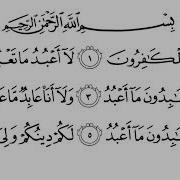 بِسْمِ ٱللَّهِ ٱلرَّحْمَٰنِ ٱلرَّحِيمِ
لْكَٰفِرُونَ ١ لَآ أَعْبُدُ مَا تَعْ
َٰبِدُونَ مَآ أَعْبُدُ ٣ وَلَآ أَنَا۠ عَابِدٌ مَّا عَ
َٰبِدُونَ مَآ أَعْبُدُ ٥ لَكُمْ دِينُكُمْ وَلِيَ